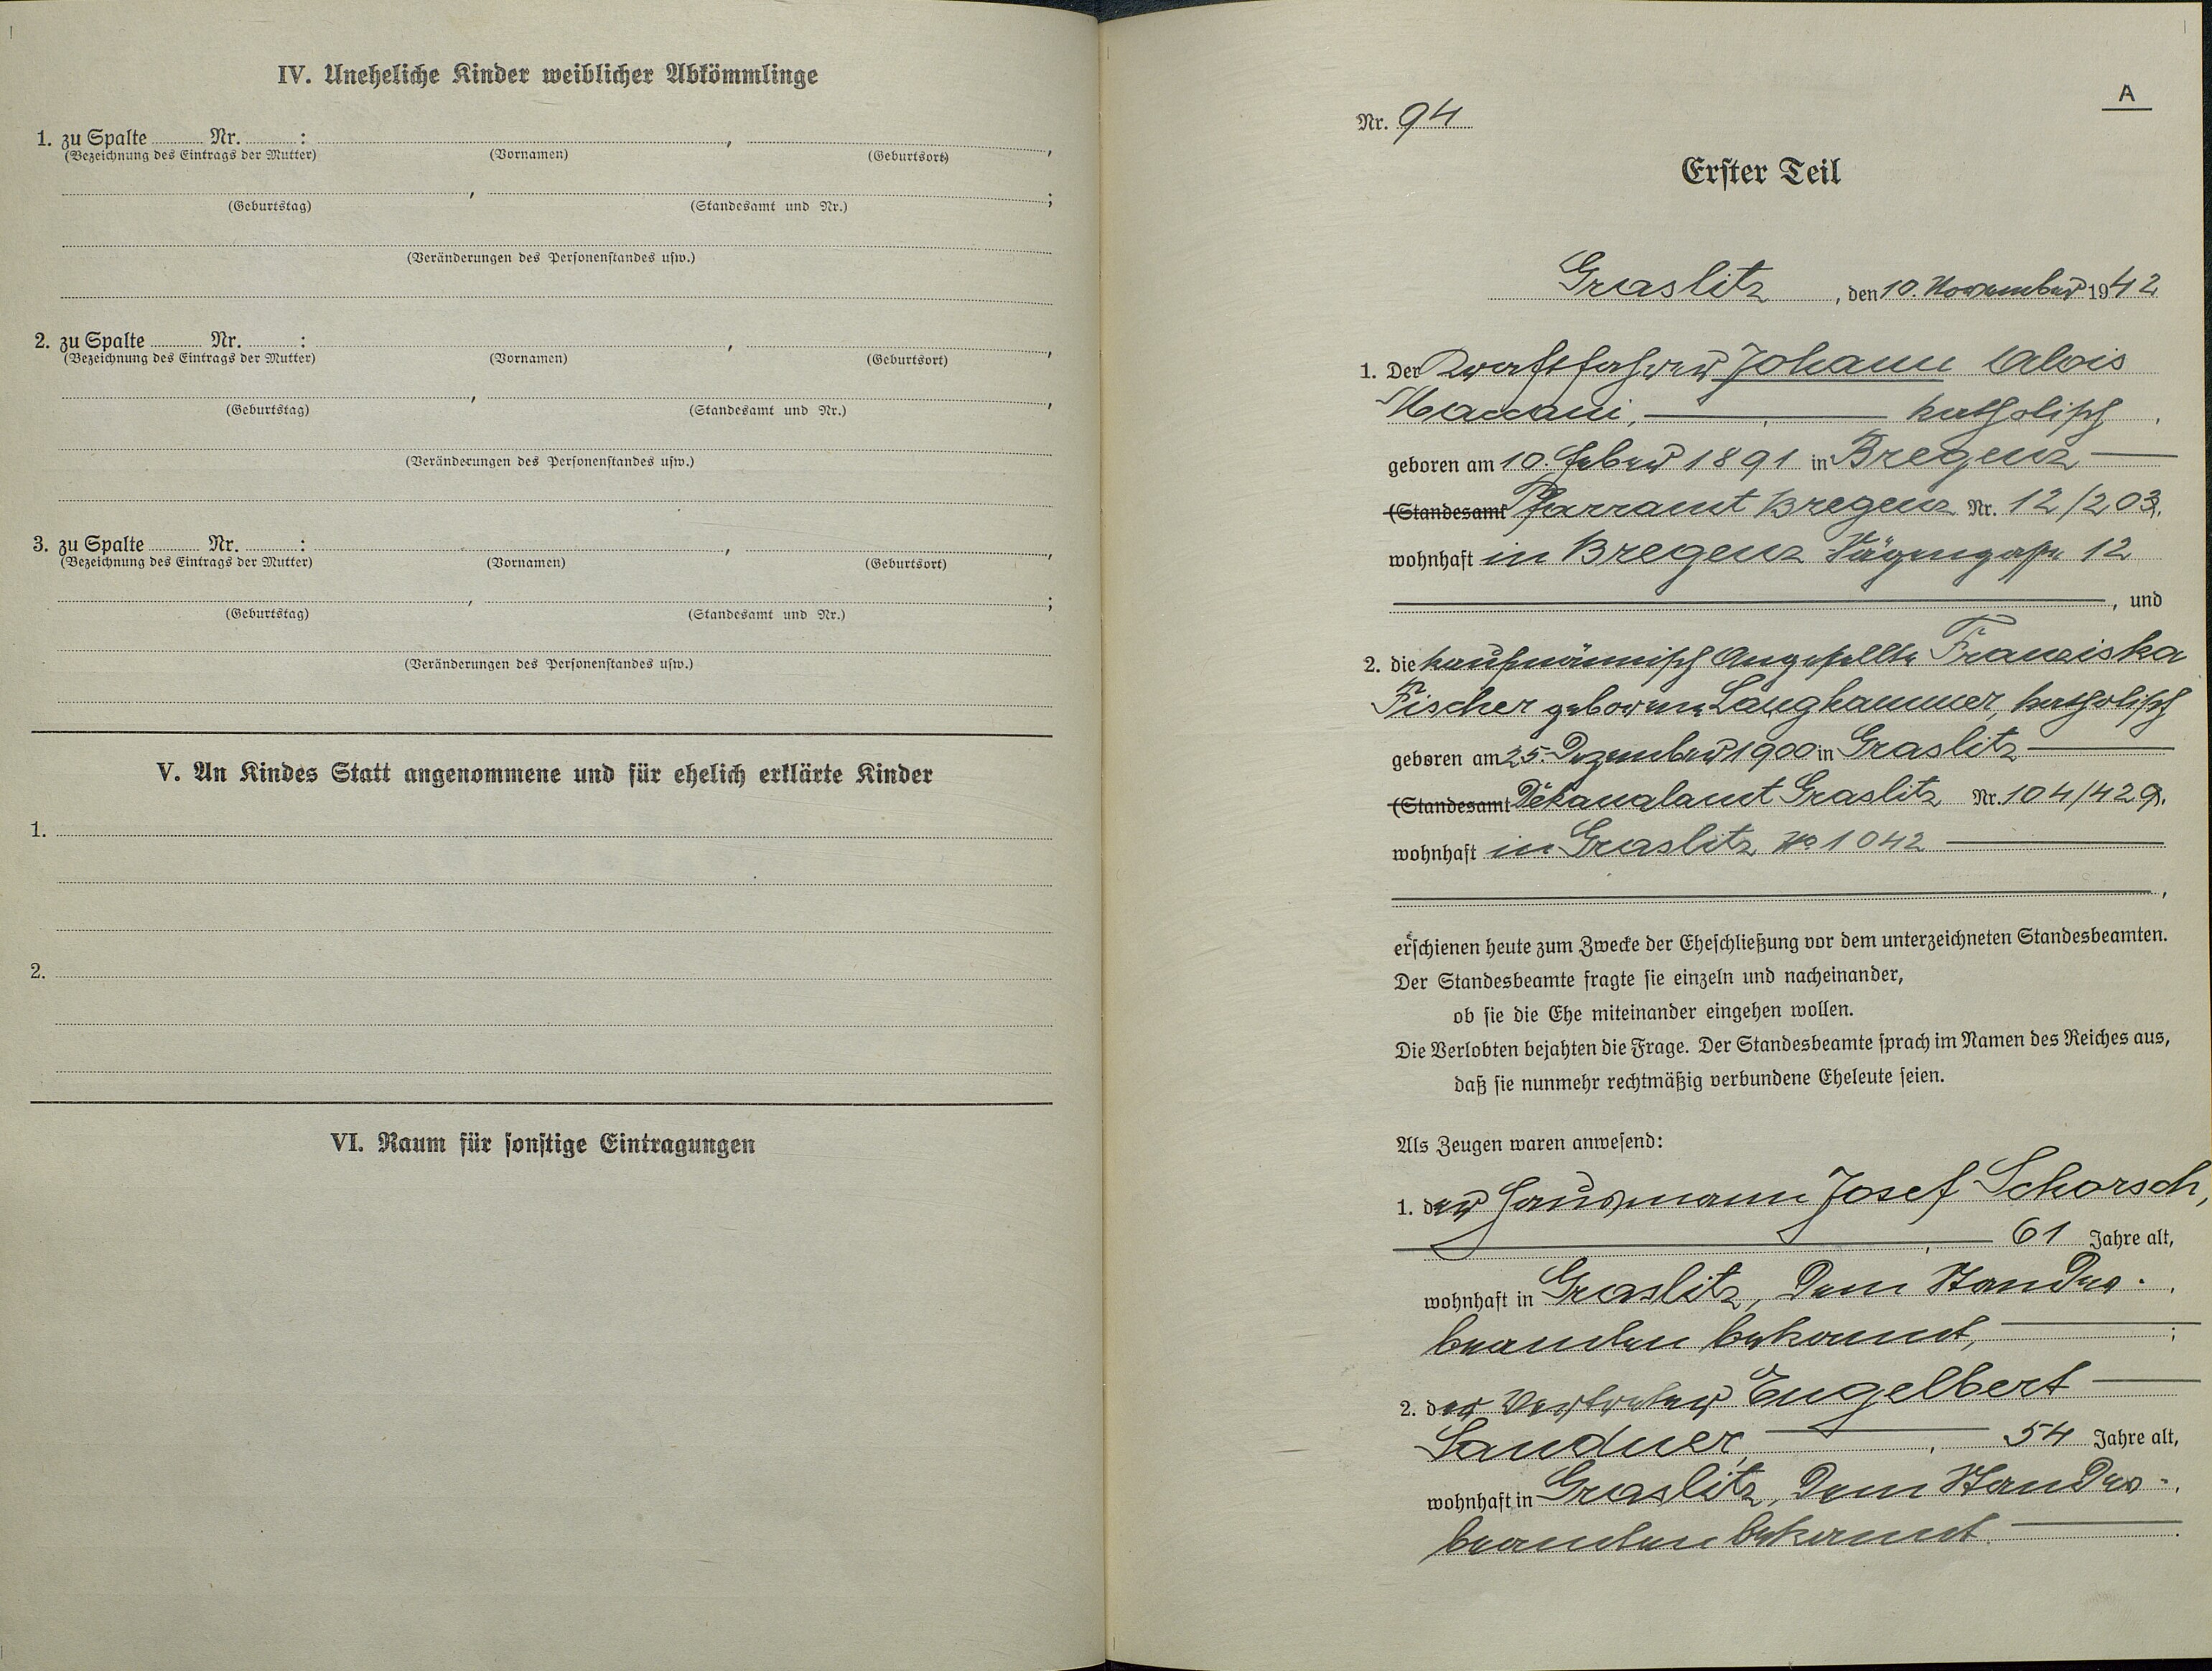 IV. Uneheliche Kinder weiblicher Abkömmlinge
1. zu Spalte ........ Nr. ........ :
(Bezeichnung des Eintrags der Mutter) (Vornamen) (Geburtsort)
(Geburtstag) (Standesamt und Nr.)
(Veränderungen des Personenstandes usw.)
2. zu Spalte ........ Nr. ........ :
(Bezeichnung des Eintrags der Mutter) (Vornamen) (Geburtsort)
(Geburtstag) (Standesamt und Nr.)
(Veränderungen des Personenstandes usw.)
3. zu Spalte ........ Nr. ........ :
(Bezeichnung des Eintrags der Mutter) (Vornamen) (Geburtsort)
(Geburtstag) (Standesamt und Nr.)
(Veränderungen des Personenstandes usw.)
V. An Kindes Statt angenommene und für ehelich erklärte Kinder
1.
2.
VI. Raum für sonstige Eintragungen
A
Nr. 94
Erster Teil
Graslitz, den 10. November 1942
1. Der Kraftfahrer Johann Alois
katholisch,
geboren am 10. Feber 1891 in Bregenz
(Standesamt Pfarramt Bregenz Nr. 12/203.
wohnhaft in Bregenz 12
, und
2. die kaufmännisch Angestellte Franziska
Fischer geborene Langhammer, katholisch
geboren am 25. Dezember 1900 in Graslitz
(Standesamt Dekanalamt Graslitz Nr. 104/429.
wohnhaft in Graslitz No 1042
erschienen heute zum Zwecke der Eheschließung vor dem unterzeichneten Standesbeamten.
Der Standesbeamte fragte sie einzeln und nacheinander,
ob sie die Ehe miteinander eingehen wollen.
Die Verlobten bejahten die Frage. Der Standesbeamte sprach im Namen des Reiches aus,
daß sie nunmehr rechtmäßig verbundene Eheleute seien.
Als Zeugen waren anwesend:
1. der Hausmann Josef Schorsch,
61 Jahre alt,
wohnhaft in Graslitz, dem Standes-
beamten bekannt, ;
2. der Vertreter Engelbert
Sandner, 54 Jahre alt,
wohnhaft in Graslitz, dem Standes-
beamten bekannt.